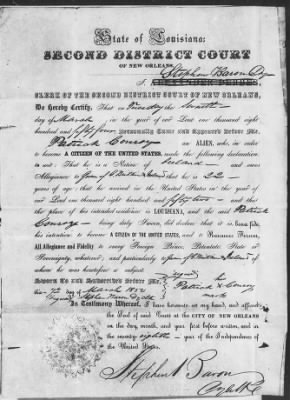 State of Louisiana:
SECOND DISTRICT COURT
OF NEW ORLEANS.
Stephen Baron Dy
CLERK OF THE SECOND DISTRICT COURT OF NEW ORLEANS,
We Hereby Certify, That on Tuesday the Seventh
day of March in the year of our Lord one thousand eight
hundred and fifty four Personally Came and Appeared Before Me,
Patrick Conroy an ALIEN, who, in order
to become A CITIZEN OF THE UNITED STATES, made the following declaration
to wit: That he is a Native of Ireland and owes
Allegiance to Queen of G. Britain & Ireland that he is 22
years of age; that he arrived in the United States in the year of
our Lord one thousand eight hundred and fifty two and that
the place of his intended residence is LOUISIANA, and the said Patrick
Conroy being duly Sworn, did declare, that it is bona fide,
his intention to become A CITIZEN OF THE UNITED STATES, and to Renounce Forever,
All Allegiance and Fidelity to every Foreign Prince, Potentate, State or
Sovereignty, whatever, and particularly to Queen of G. Britain & Ireland of
whom he was heretofore a subject
Sworn to and Subscribed Before Me, Signed his
this 7 day of March 1854 Patrick X Conroy
Signed Stephen Baron Dy Clk mark
In Testimony Whereof, I have hereunto set my hand, and affixed
the Seal of said Court at the CITY OF NEW ORLEANS
on the day, month, and year first before written, and in
the seventy eighth year of the Independence of
the United States.
Stephen Baron
Dy Clk